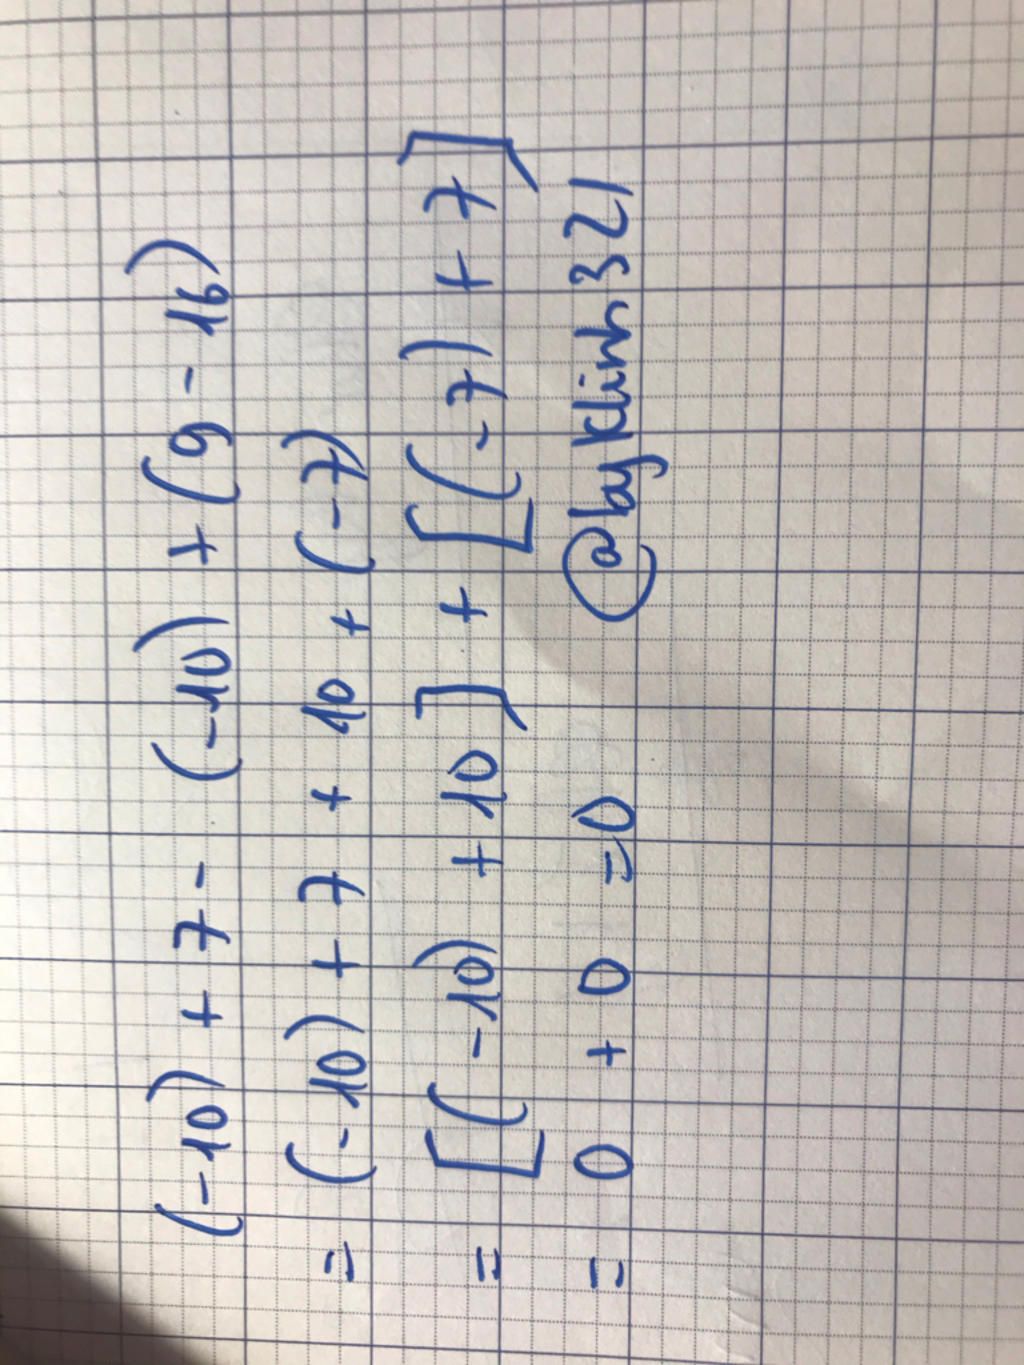 (-10) + 7 - (-10) + (9 - 16)
= (-10) + 7 + 10 + (-7)
= [(-10) + 10] + [(-7) + 7]
= 0 + 0 = 0 @bayklim321